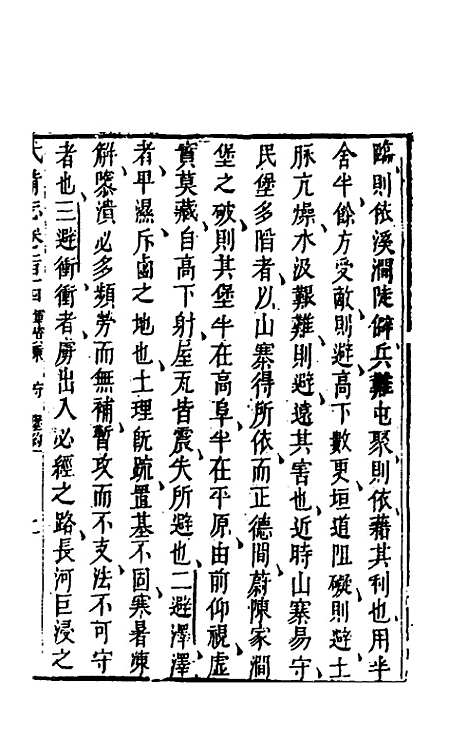 臨則依溪澗陡僻兵難屯聚則依藉其利也用半
舍半餘方受敵則避高下數更垣道阻礙則避土
脉亢燥水汲艱難則避遠其害也近時山寨易守
民堡多陷者以山寨得所依而正德間蔚陳家澗
堡之破則其堡半在高阜半在平原由前仰視虛
實莫藏自高下射屋瓦皆震失所避也二避澤澤
者卑濕斥鹵之地也土理既疏置基不固寒暑凍
解隳潰必多頻勞而無補暫攻而不支法不可守
者也三避衝衝者虜出入必經之路長河巨浸之
武備志卷一百一十